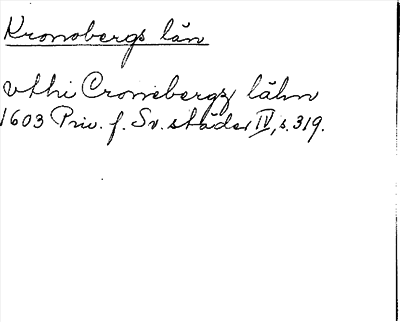 Kronobergs län
vthi Cronebergz lähn
1603 Priv. f. Sv. städer IV, s. 319.